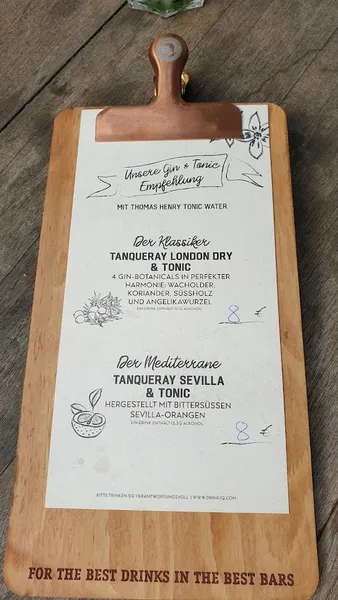 Unsere Gin & Tonic
Empfehlung
MIT THOMAS HENRY TONIC WATER
Der Klassiker
TANQUERAY LONDON DRY
& TONIC
4 GIN-BOTANICALS IN PERFEKTER
HARMONIE: WACHOLDER,
KORIANDER, SÜSSHOLZ
UND ANGELIKAWURZEL
8 €
Der Mediterrane
TANQUERAY SEVILLA
& TONIC
HERGESTELLT MIT BITTERSÜSSEN
SEVILLA-ORANGEN
EIN DRINK ENTHÄLT 13,3 G ALKOHOL
8 €
BITTE TRINKEN SIE VERANTWORTUNGSVOLL | WWW.DRINKIQ.COM
FOR THE BEST DRINKS IN THE BEST BARS